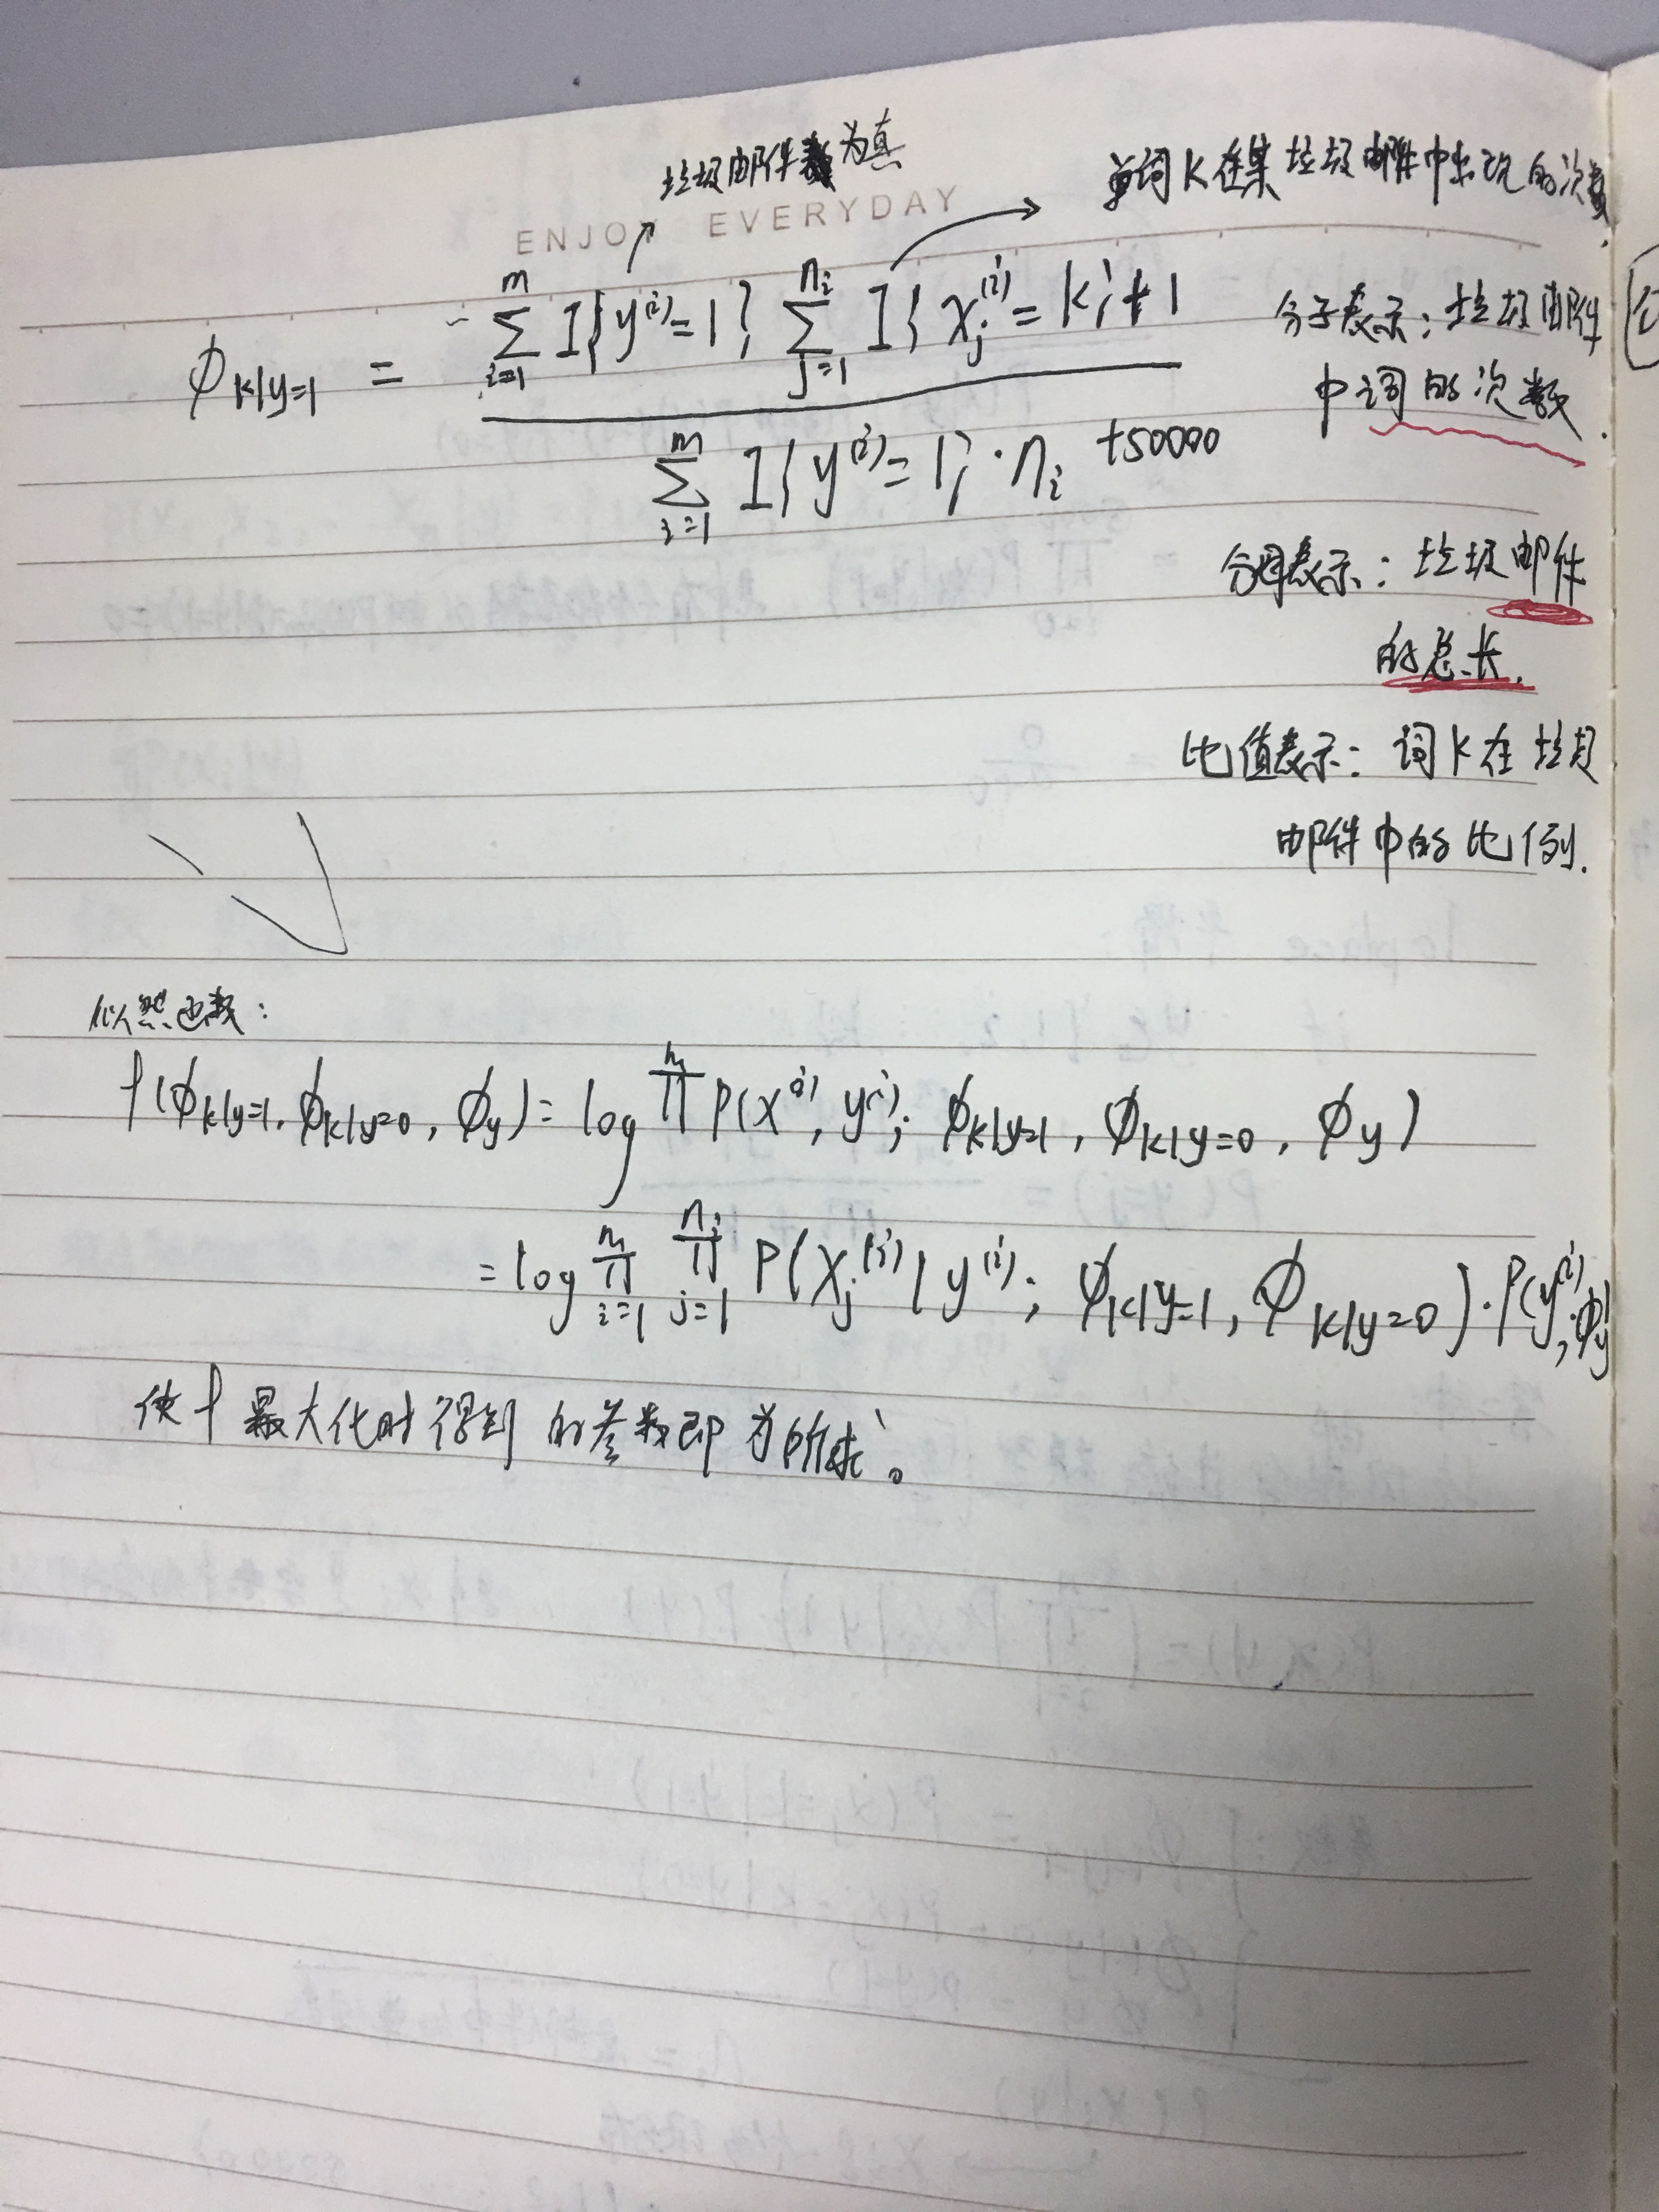 垃圾邮件为真
单词K在某垃圾邮件中出现的次数.
ENJOY EVERYDAY
ϕ_{k|y=1} = \frac{\sum_{i=1}^{m} 1\{y^{(i)}=1\} \sum_{j=1}^{n_i} 1\{x_j^{(i)}=k\}+1}{\sum_{i=1}^{m} 1\{y^{(i)}=1\}·n_i +50000}
分子表示:垃圾邮件
中词的次数.
分母表示:垃圾邮件
的总长.
比值表示:词K在垃圾
邮件中的比例.
似然函数:
f(ϕ_{k|y=1}, ϕ_{k|y=0}, ϕ_y) = log \prod^{m} P(x^{(i)}, y^{(i)}; ϕ_{k|y=1}, ϕ_{k|y=0}, ϕ_y)
= log \prod_{i=1}^{m} \prod_{j=1}^{n_i} P(x_j^{(i)} | y^{(i)}; ϕ_{k|y=1}, ϕ_{k|y=0})·P(y^{(i)}; ϕ_y)
使f最大化时得到的参数即为所求。